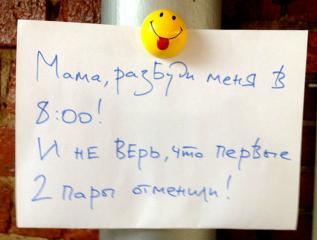 Мама, разбуди меня в
8:00!
И не верь, что первые
2 пары отменили!